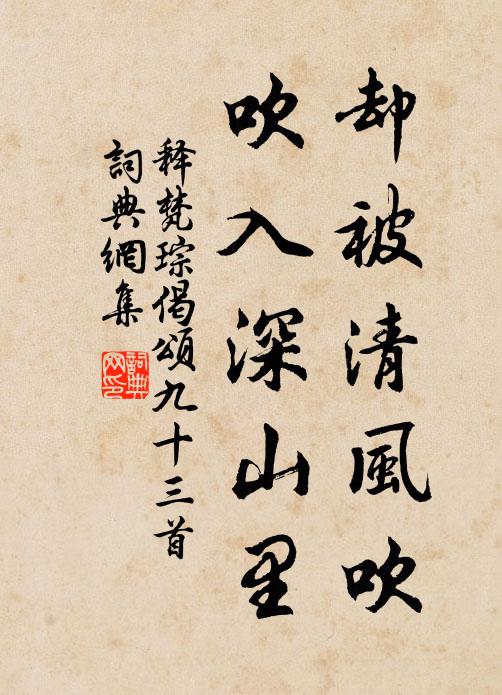 却被清風吹
吹入深山里
释梵琮偈頌九十三首
詞典網集
詞典
网印